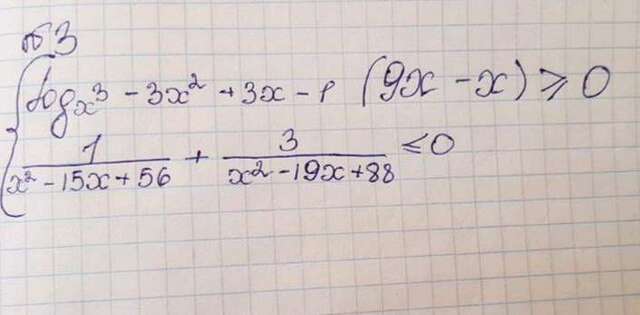 №3
log_{x³ - 3x² + 3x - 1} (9x - x) ⩾ 0
1/(x² - 15x + 56) + 3/(x² - 19x + 88) ⩽ 0